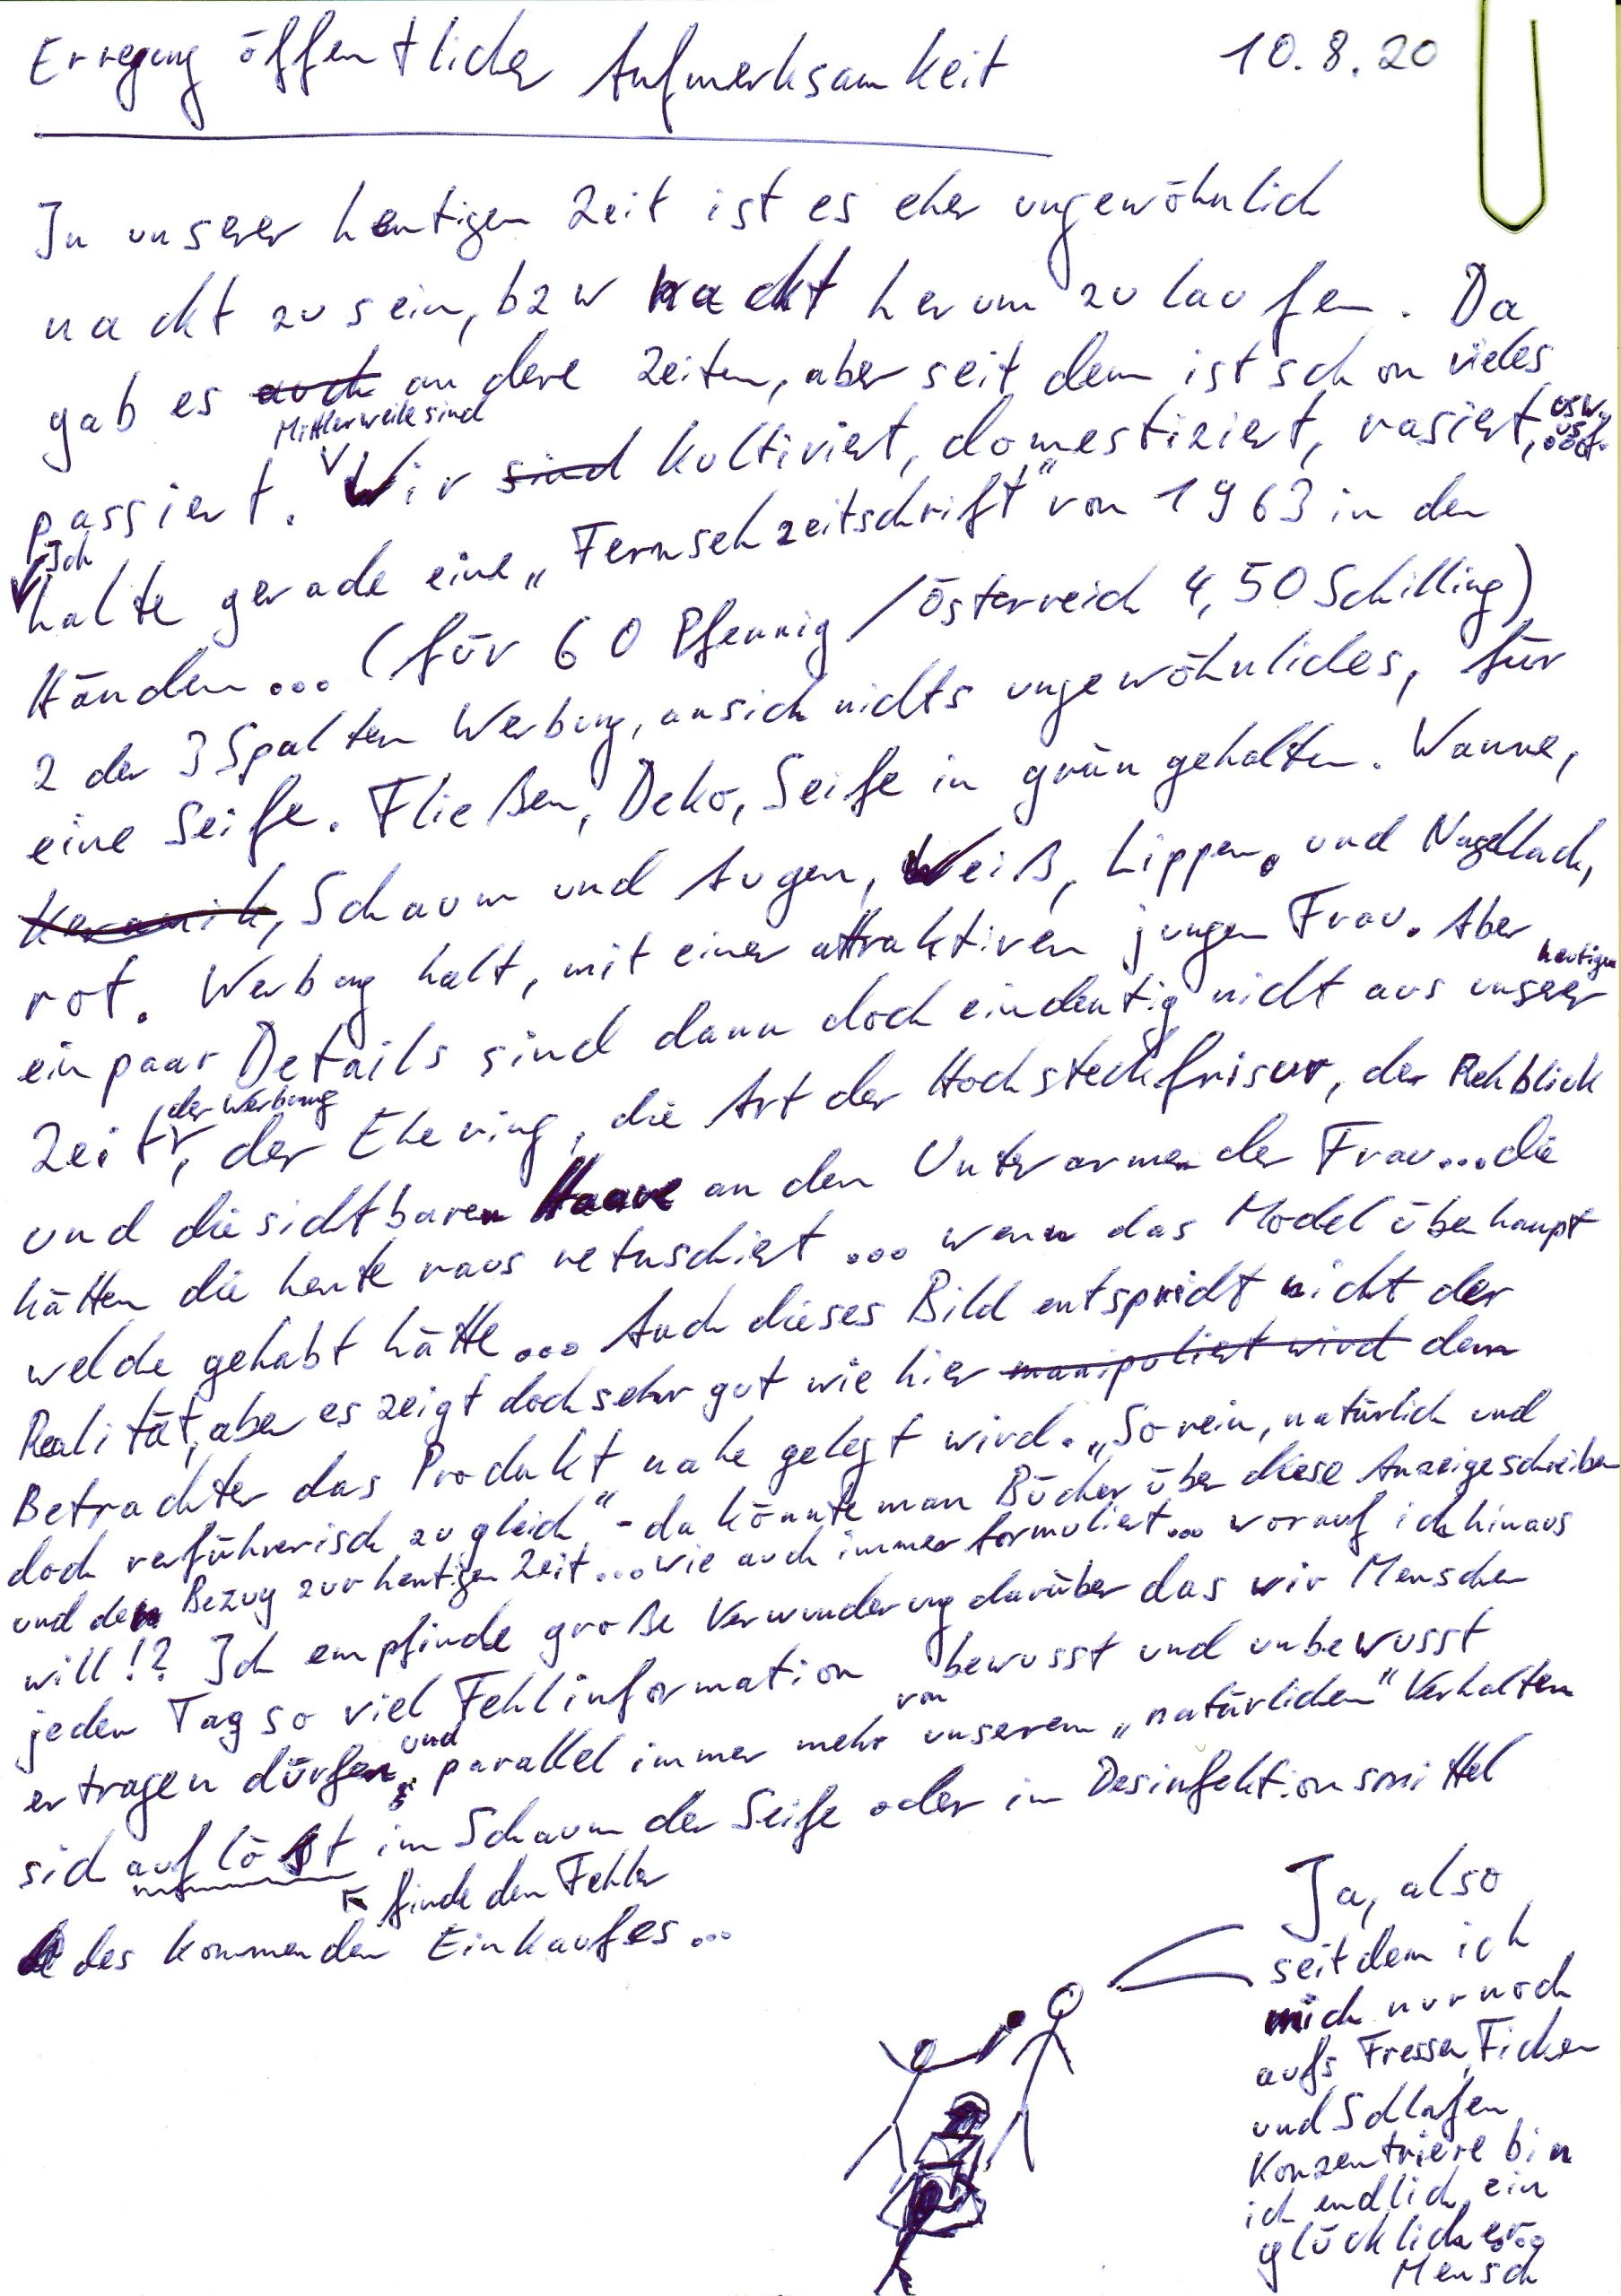 Erregung öffentlicher Aufmerksamkeit
10.8.20
In unserer heutigen Zeit ist es eher ungewöhnlich
nackt zu sein, bzw nackt herum zu laufen. Da
gab es auch andere Zeiten, aber seit dem ist schon vieles
Mittlerweile sind
passiert. Wir sind kultiviert, domestiziert, rasiert, usw,
usf.
Ich
halte gerade eine „Fernsehzeitschrift" von 1963 in den
Händen... (für 60 Pfennig / Österreich 4,50 Schilling)
2 der 3 Spalten Werbung, ansich nichts ungewöhnliches, für
eine Seife. Fließen, Deko, Seife in grün gehalten. Wanne,
Keramik, Schaum und Augen, Weiß, Lippen. und Nagellack,
rot. Werbung halt, mit einer attraktiven jungen Frau. Aber
heutigen
ein paar Details sind dann doch eindeutig nicht aus unserer
der Werbung
Zeit, der Ehering, die Art der Hochsteckfrisur, der Rehblick
und die sichtbaren Haare an den Unterarmen der Frau...die
hätten die heute raus retuschiert ... wenn das Model überhaupt
welche gehabt hätte... Auch dieses Bild entspricht nicht der
Realität, aber es zeigt doch sehr gut wie hier manipuliert wird dem
Betrachter das Produkt nahe gelegt wird. „So rein, natürlich und
doch verführerisch zugleich" - da könnte man Bücher über diese Anzeige schreiben
und den Bezug zur heutigen Zeit...wie auch immer formuliert... worauf ich hinaus
will!? Ich empfinde große Verwunderung darüber das wir Menschen
jeden Tag so viel Fehlinformation bewusst und unbewusst
und
von
ertragen dürfen, parallel immer mehr unserem „natürlichen" Verhalten
sich auflöst im Schaum der Seife oder im Desinfektionsmittel
finde den Fehler
des kommenden Einkaufes...
Ja, also
seitdem ich
mich nur noch
aufs Fressen, Ficken
und Schlafen
Konzentriere bin
ich endlich ein
glücklicher...
Mensch